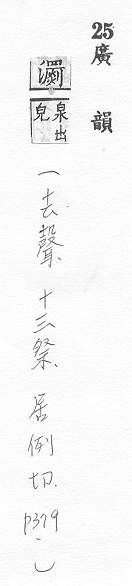 25 廣韻
瀱 泉出皃 (去聲 十三祭 居例切 p379)